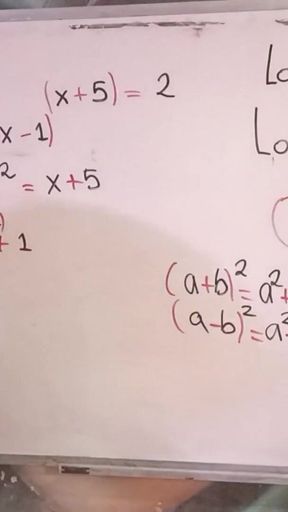 (x+5) = 2
x-1)
2 = x+5
+ 1
Lo
Lo
(a+b)² = a²+
(a-b)² = a²-